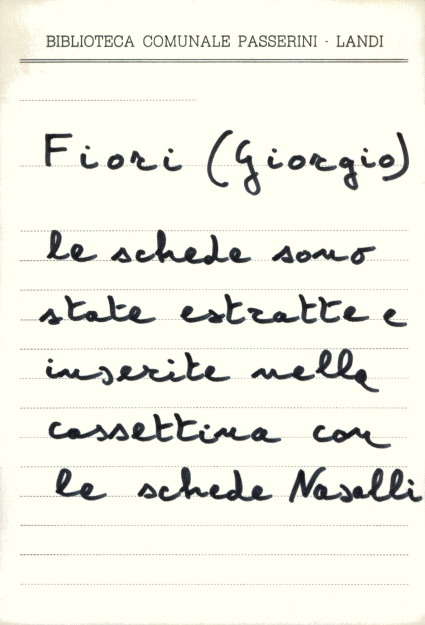 BIBLIOTECA COMUNALE PASSERINI - LANDI
Fiori (Giorgio)
le schede sono
state estratte e
inserite nella
cassettina con
le schede Nasalli